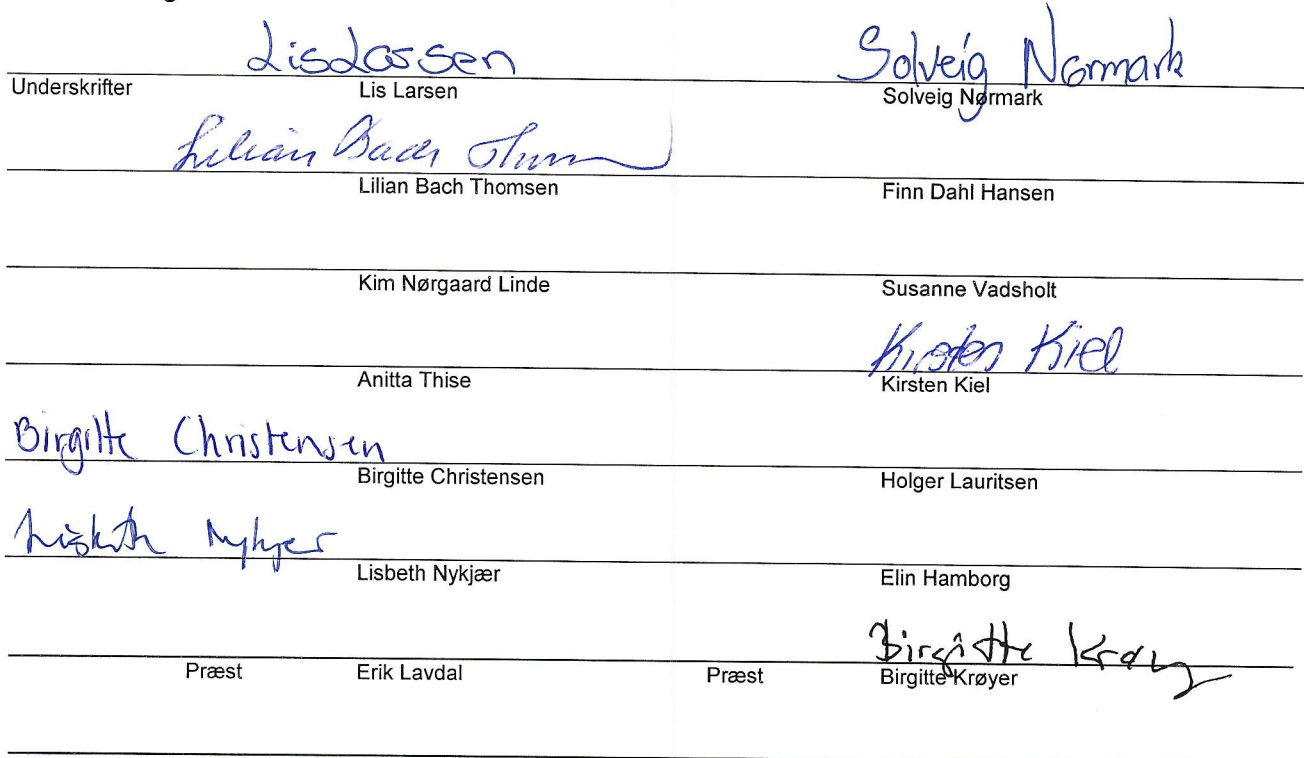 Lis Larsen Solveig Nørmark
Underskrifter Lis Larsen Solveig Nørmark
Lilian Bach Thomsen
Lilian Bach Thomsen Finn Dahl Hansen
Kim Nørgaard Linde Susanne Vadsholt
Kirsten Kiel
Anitta Thise Kirsten Kiel
Birgitte Christensen
Birgitte Christensen Holger Lauritsen
Lisbeth Nykjær
Lisbeth Nykjær Elin Hamborg
Birgitte Krøyer
Præst Erik Lavdal Præst Birgitte Krøyer